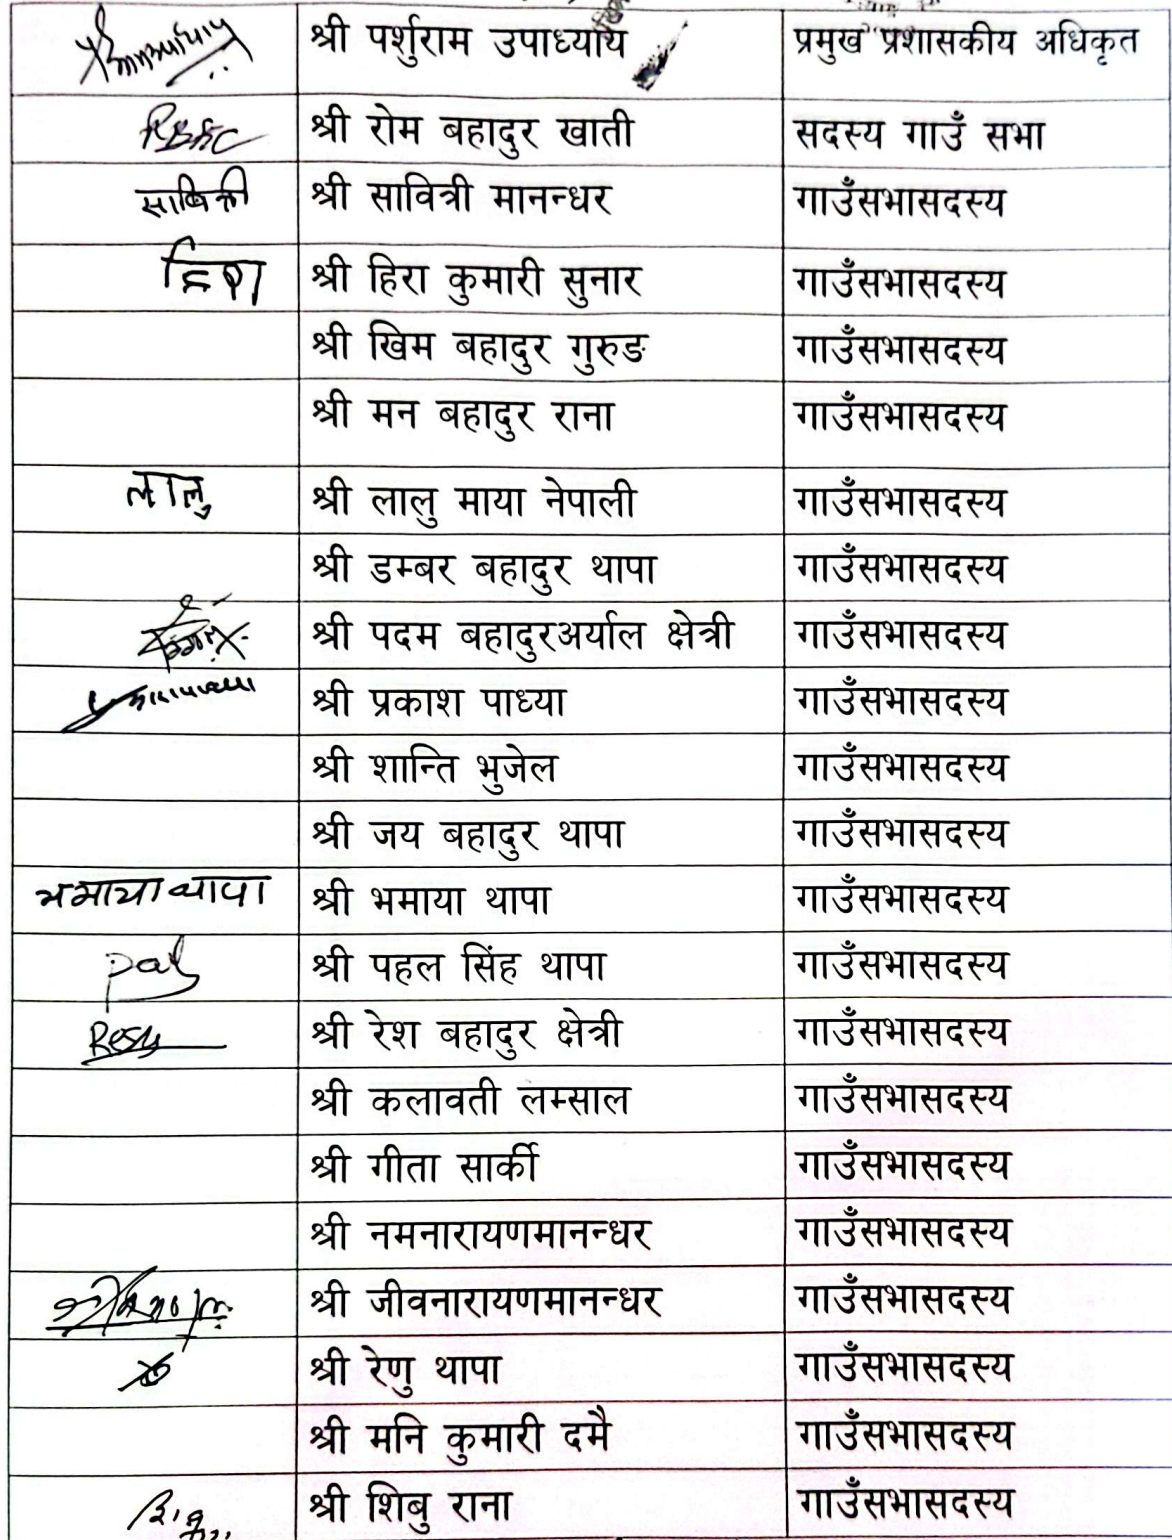 श्री पर्शुराम उपाध्याय प्रमुख प्रशासकीय अधिकृत
श्री रोम बहादुर खाती सदस्य गाउँ सभा
सावित्री श्री सावित्री मानन्धर गाउँसभासदस्य
हिरा श्री हिरा कुमारी सुनार गाउँसभासदस्य
श्री खिम बहादुर गुरुङ गाउँसभासदस्य
श्री मन बहादुर राना गाउँसभासदस्य
लालु श्री लालु माया नेपाली गाउँसभासदस्य
श्री डम्बर बहादुर थापा गाउँसभासदस्य
श्री पदम बहादुरअर्याल क्षेत्री गाउँसभासदस्य
श्री प्रकाश पाध्या गाउँसभासदस्य
श्री शान्ति भुजेल गाउँसभासदस्य
श्री जय बहादुर थापा गाउँसभासदस्य
भमाया थापा श्री भमाया थापा गाउँसभासदस्य
श्री पहल सिंह थापा गाउँसभासदस्य
श्री रेश बहादुर क्षेत्री गाउँसभासदस्य
श्री कलावती लम्साल गाउँसभासदस्य
श्री गीता सार्की गाउँसभासदस्य
श्री नमनारायणमानन्धर गाउँसभासदस्य
श्री जीवनारायणमानन्धर गाउँसभासदस्य
श्री रेणु थापा गाउँसभासदस्य
श्री मनि कुमारी दमै गाउँसभासदस्य
श्री शिबु राना गाउँसभासदस्य